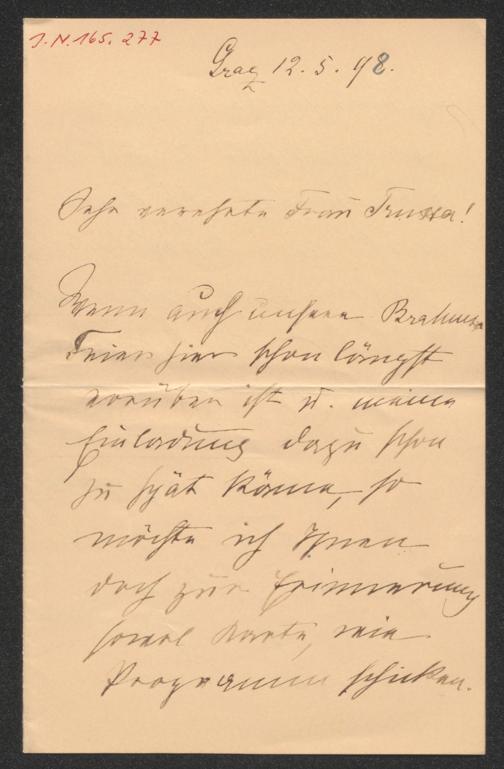 I.N. 165.277
Graz 12. 5. 98.
Sehr verehrte Frau Truxa!
Wenn auch unsere Brahms
Feier hier schon längst
vorüber ist u. meine
Einladung dazu schon
zu spät käme, so
möchte ich Ihnen
doch zur Erinnerung
sowol Karte, wie
Programm schicken.